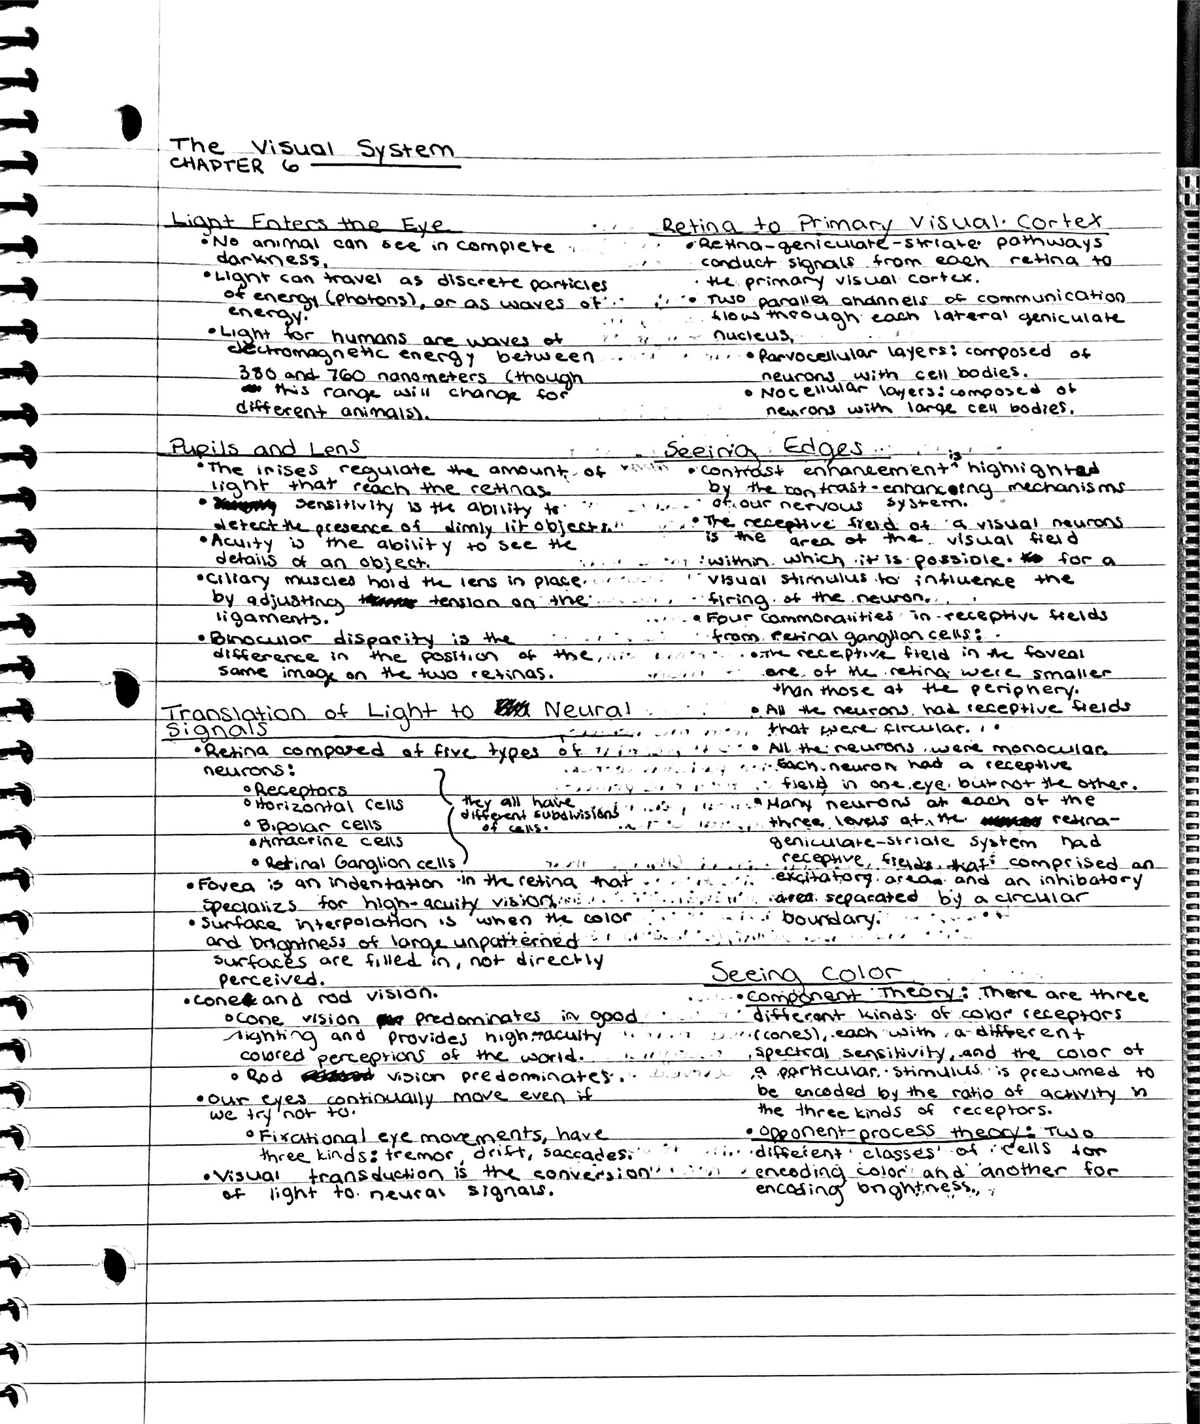 The Visual System
CHAPTER 6
Light Enters the Eye
• No animal can see in complete
darkness.
• Light can travel as discrete particles
of energy (photons), or as waves of
energy.
• Light for humans are waves of
electromagnetic energy between
380 and 760 nanometers (though
this range will change for
different animals).
Pupils and Lens
• The irises regulate the amount of
light that reach the retinas.
• Sensitivity is the ability to
detect the presence of dimly lit objects.
• Acuity is the ability to see the
details of an object.
• Ciliary muscles hold the lens in place
by adjusting tension on the
ligaments.
• Binocular disparity is the
difference in the position of the
same image on the two retinas.
Translation of Light to Neural
Signals
• Retina composed of five types of
neurons:
• Receptors
• Horizontal cells
• Bipolar cells
• Amacrine cells
• Retinal Ganglion cells
they all have
different subdivisions
of cells.
• Fovea is an indentation in the retina that
specializs for high-acuity vision
• Surface interpolation is when the color
and brightness of large unpatterned
surfaces are filled in, not directly
perceived.
• Cone and rod vision.
• Cone vision predominates in good
lighting and provides high-acuity
colored perceptions of the world.
• Rod vision predominates.
• Our eyes continually move even if
we try not to.
• Fixational eye movements, have
three kinds: tremor, drift, saccades.
• Visual transduction is the conversion
of light to neural signals.
Retina to Primary Visual Cortex
• Retina-geniculate-striate pathways
conduct signals from each retina to
the primary visual cortex.
• Two parallel channels of communication
flow through each lateral geniculate
nucleus,
• Parvocellular layers: composed of
neurons with cell bodies.
• Nocellular layers: composed of
neurons with large cell bodies.
Seeing Edges
• Contrast enhancement is highlighted
by the contrast-enhancing mechanisms
of our nervous system.
• The receptive field of a visual neurons
is the area of the visual field
within which it is possible for a
visual stimulus to influence the
firing of the neuron.
• Four commonalities in receptive fields
from retinal ganglion cells:
• The receptive field in the foveal
are of the retina were smaller
than those at the periphery.
• All the neurons had receptive fields
that were circular.
• All the neurons were monocular.
Each neuron had a receptive
field in one eye but not the other.
• Many neurons at each of the
three levels at the retina-
geniculate-striate system had
receptive fields that comprised an
excitatory area and an inhibitory
area separated by a circular
boundary.
Seeing Color
• Component Theory: There are three
different kinds of color receptors
(cones), each with a different
spectral sensitivity, and the color of
a particular stimulus is presumed to
be encoded by the ratio of activity in
the three kinds of receptors.
• Opponent-process theory: Two
different classes of cells for
encoding color and another for
encoding brightness.